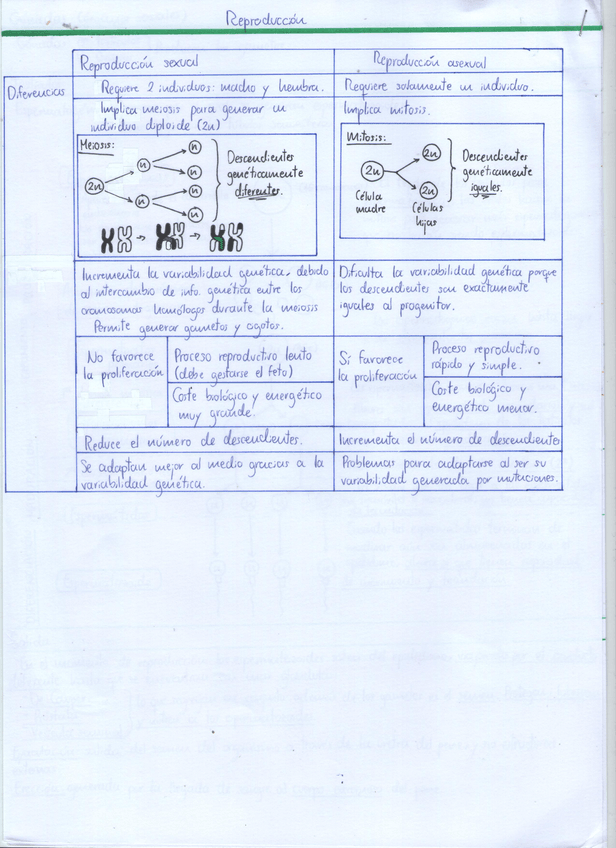 Reproducción
Reproducción sexual
Reproducción asexual
Diferencias
Requiere 2 individuos: macho y hembra.
Requiere solamente un individuo.
Implica meiosis para generar un
individuo diploide (2n)
Implica mitosis.
Meiosis:
2n
n
n
n
n
n
n
Descendientes
genéticamente
diferentes.
Mitosis:
2n
2n
2n
Célula
madre
Células
hijas
Descendientes
genéticamente
iguales.
Incrementa la variabilidad genética, debido
al intercambio de info. genética entre los
cromosomas homólogos durante la meiosis
Permite generar gametos y cigotos.
Dificulta la variabilidad genética porque
los descendientes son exactamente
iguales al progenitor.
No favorece
la proliferación
Proceso reproductivo lento
(debe gestarse el feto)
Coste biológico y energético
muy grande.
Sí favorece
la proliferación
Proceso reproductivo
rápido y simple.
Coste biológico y
energético menor.
Reduce el número de descendientes.
Incrementa el número de descendientes
Se adaptan mejor al medio gracias a la
variabilidad genética.
Problemas para adaptarse al ser su
variabilidad generada por mutaciones.